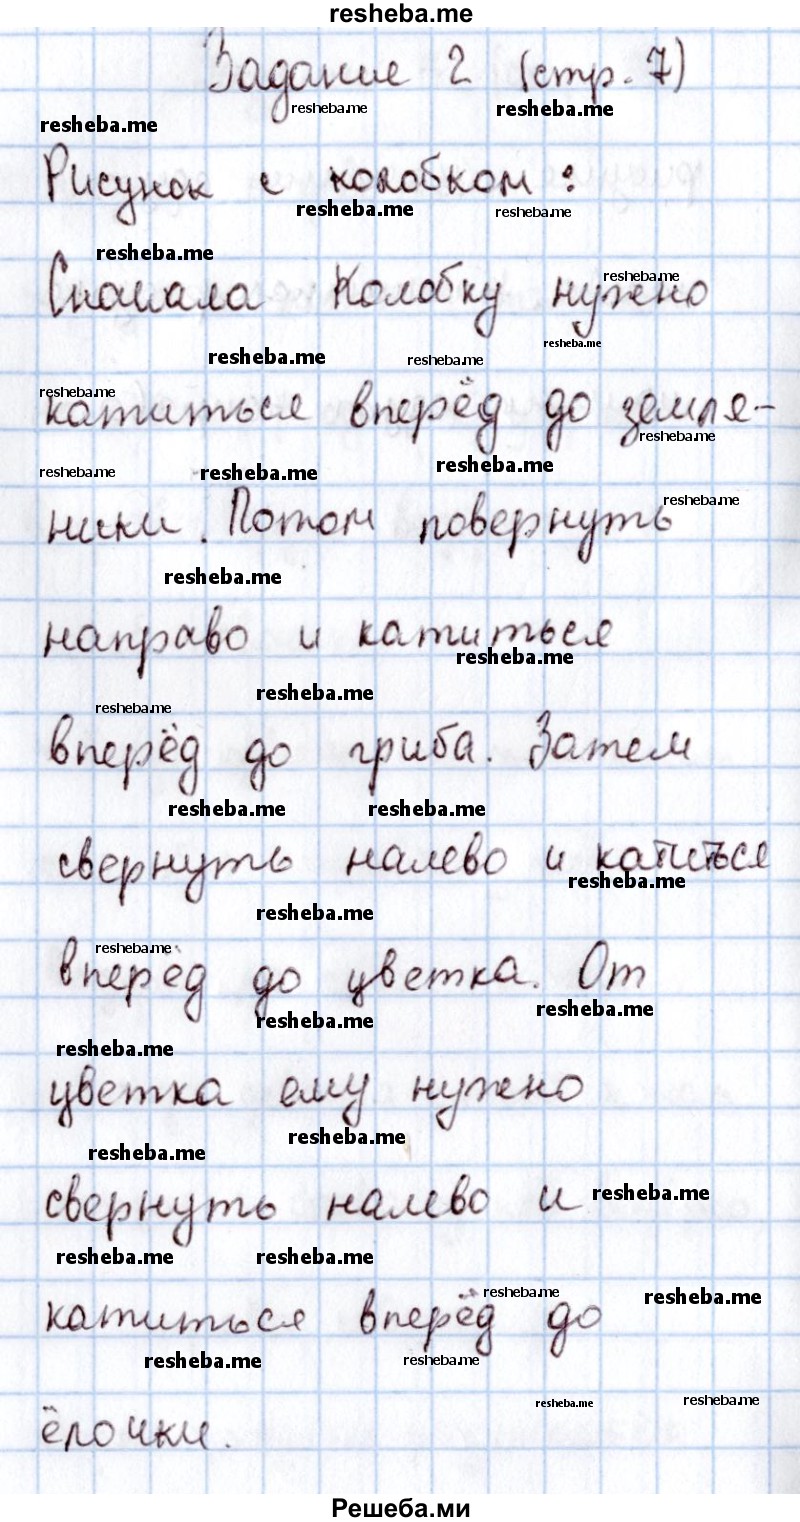 resheba.me
Задание 2 (стр. 7)
resheba.me resheba.me
resheba.me
Рисунок с колобком:
resheba.me resheba.me
resheba.me
resheba.me
Сначала Колобку нужно
resheba.me
resheba.me resheba.me
resheba.me
катиться вперёд до земля-
resheba.me
resheba.me resheba.me resheba.me
resheba.me
ники. Потом повернуть
resheba.me
направо и катиться
resheba.me
resheba.me
resheba.me
вперёд до гриба. Затем
resheba.me resheba.me
свернуть налево и катиться
resheba.me
resheba.me
resheba.me
вперёд до цветка. От
resheba.me
resheba.me
resheba.me
цветка ему нужно
resheba.me
resheba.me
свернуть налево и resheba.me
resheba.me resheba.me
resheba.me resheba.me
катиться вперёд до
resheba.me resheba.me
resheba.me resheba.me
ёлочки.
Решеба.ми